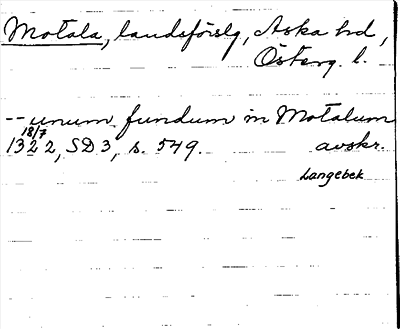 Motala, landsförslg, Aska hd,
Österg. l.
-- unum fundum in Motalum
18/7
1322, SD 3, s. 549. avskr.
Langebek